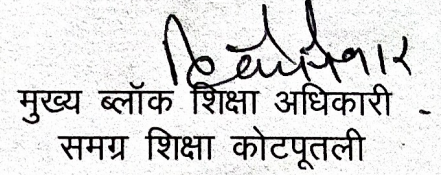 मुख्य ब्लॉक शिक्षा अधिकारी -
समग्र शिक्षा कोटपूतली